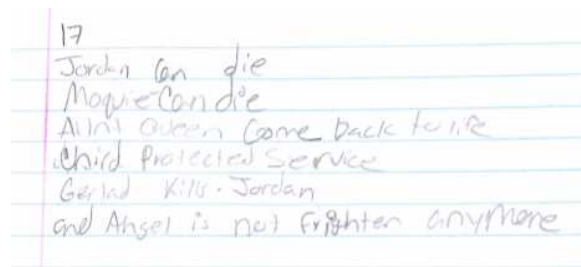 17
Jordan Can die
Moquie Can die
Aunt Queen Come back to life
Child Protected Service
Gerlad Kills. Jordan
and Angel is not Frighten anymore